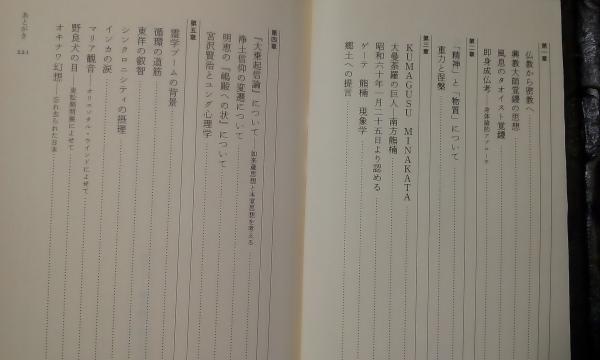 第一章
仏教から密教へ
興教大師覚鑁の思想
風息のタオイスト覚鑁
即身成仏考 身体論的アプローチ
第二章
「精神」と「物質」について
重力と涅槃
第三章
KUMAGUSU MINAKATA
大曼荼羅の巨人-南方熊楠
昭和六十年一月二十五日より認める
ゲーテ 熊楠 現象学
郷土への提言
第四章
『大乗起信論』について 如来蔵思想と本覚思想を考える
浄土信仰の変遷について
明恵の「嶋殿への状」について
宮沢賢治とユング心理学
第五章
霊学ブームの背景
循環の道筋
東洋の叡智
シンクロニシティの摂理
インカの涙
マリア観音 オリエンタル・ウインドによせて
野良犬の目
オキナワ幻想 忘れ去られた日本
あとがき